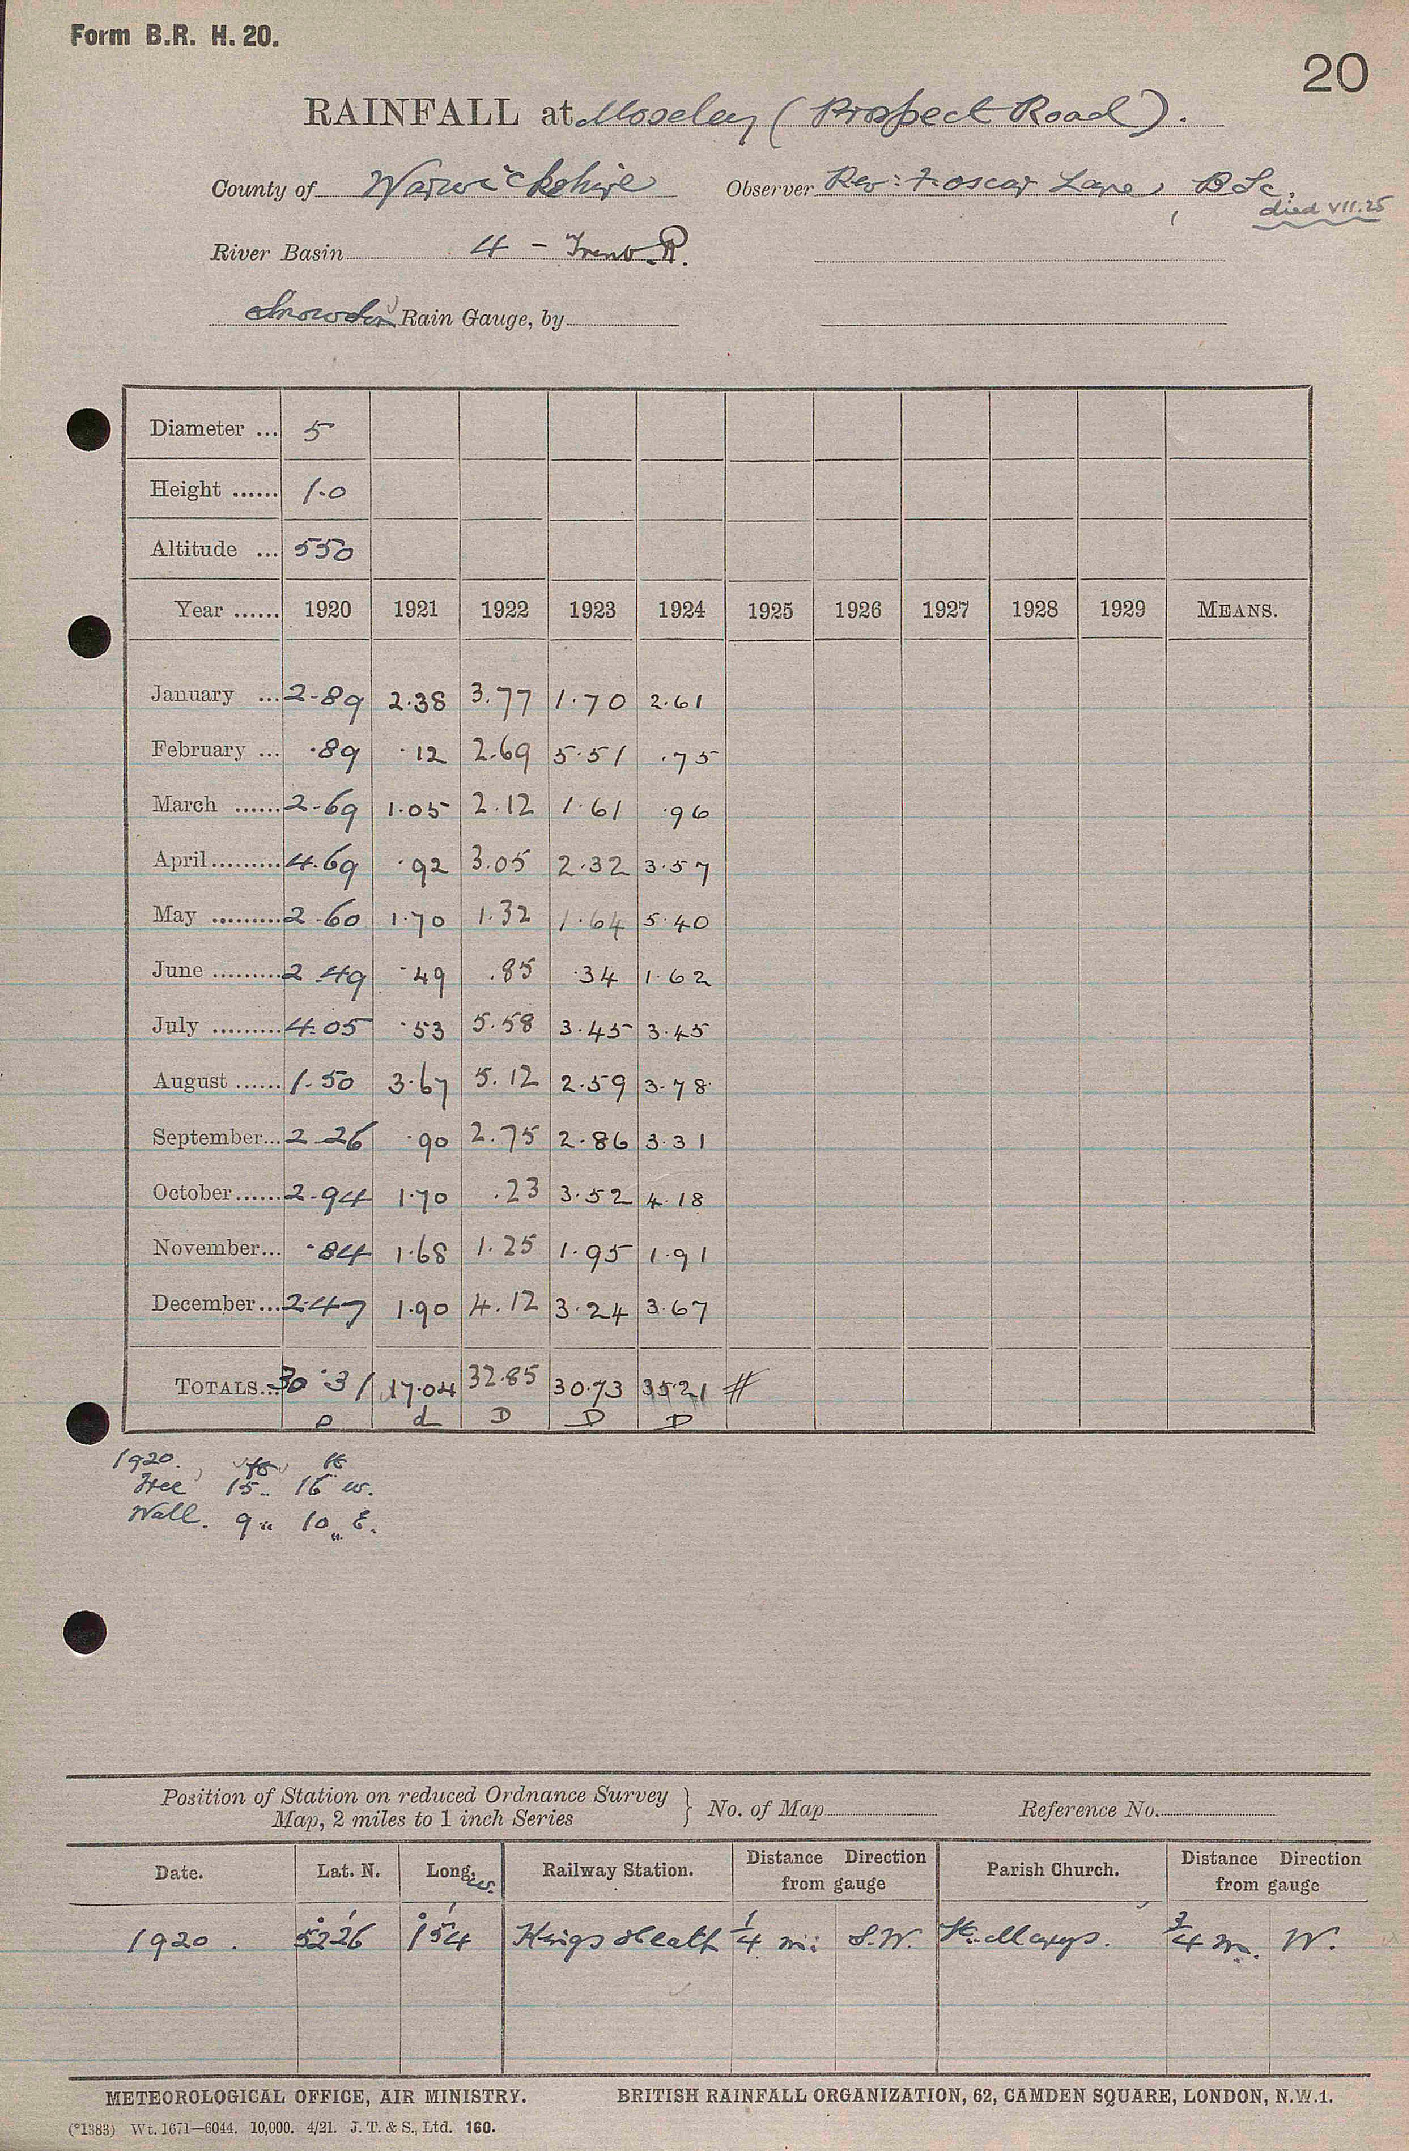 Form B.R. H. 20.
20
RAINFALL at Moseley (Prospect Road).
County of Warwickshire Observer Rev: F. Oscar Lane, BSc.
died VII.25
River Basin 4 - Trent R.
Snowdon Rain Gauge, by
Diameter ... 5
Height ...... 1.0
Altitude ... 550
Year ...... 1920 1921 1922 1923 1924 1925 1926 1927 1928 1929 MEANS.
January ... 2.89 2.38 3.77 1.70 2.61
February ... .89 .12 2.69 5.51 .75
March ...... 2.69 1.05 2.12 1.61 .96
April ......... 4.69 .92 3.05 2.32 3.57
May ......... 2.60 1.70 1.32 1.64 5.40
June ......... 2.49 .49 .85 .34 1.62
July ......... 4.05 .53 5.58 3.45 3.45
August ...... 1.50 3.67 5.12 2.59 3.78
September... 2.26 .90 2.75 2.86 3.31
October...... 2.94 1.70 .23 3.52 4.18
November... .84 1.68 1.25 1.95 1.91
December... 2.47 1.90 4.12 3.24 3.67
TOTALS... 30.31 17.04 32.85 30.73 35.21 #
D d D D D
1920. ft ft
Tree 15 " 16 W.
Wall. 9 " 10 " E.
Position of Station on reduced Ordnance Survey Map, 2 miles to 1 inch Series } No. of Map Reference No.
Date. Lat. N. Long. W. Railway Station. Distance Direction from gauge Parish Church. Distance Direction from gauge
1920. 52° 26' 1° 54' Kings Heath 1/4 mi: S.W. St. Marys. 3/4 m. W.
METEOROLOGICAL OFFICE, AIR MINISTRY. BRITISH RAINFALL ORGANIZATION, 62, CAMDEN SQUARE, LONDON, N.W.1.
(*1383) Wt. 1671—6044. 10,000. 4/21. J. T. & S., Ltd. 160.